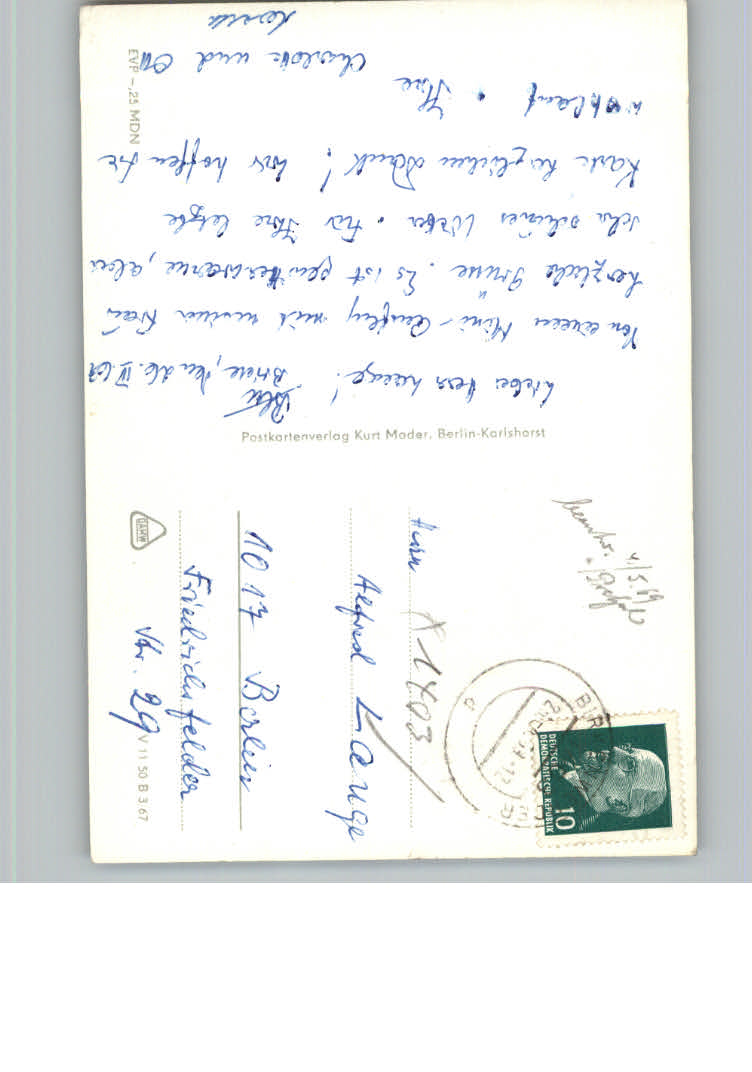 Lieber Herr Lange!
Birk, den 26. III. 67
Von einem Mini-Ausflug mit meiner Frau
herzliche Grüsse. Es ist gewitterwarm, aber
sehr schönes Wetter. Für Ihre letzte
Karte herzlichen Dank! Wir hoffen Sie
wohlauf
Ihre
Charlotte und Ott
EVP -,25 MDN
Postkartenverlag Kurt Mader, Berlin-Karlshorst
4/5.69
X 1403
Herrn
Alfred Lange
1017 Berlin
Friedrichsfelder
Str. 29
V 11 50 B 3 67
DAMW
DEUTSCHE
DEMOKRATISCHE REPUBLIK
10